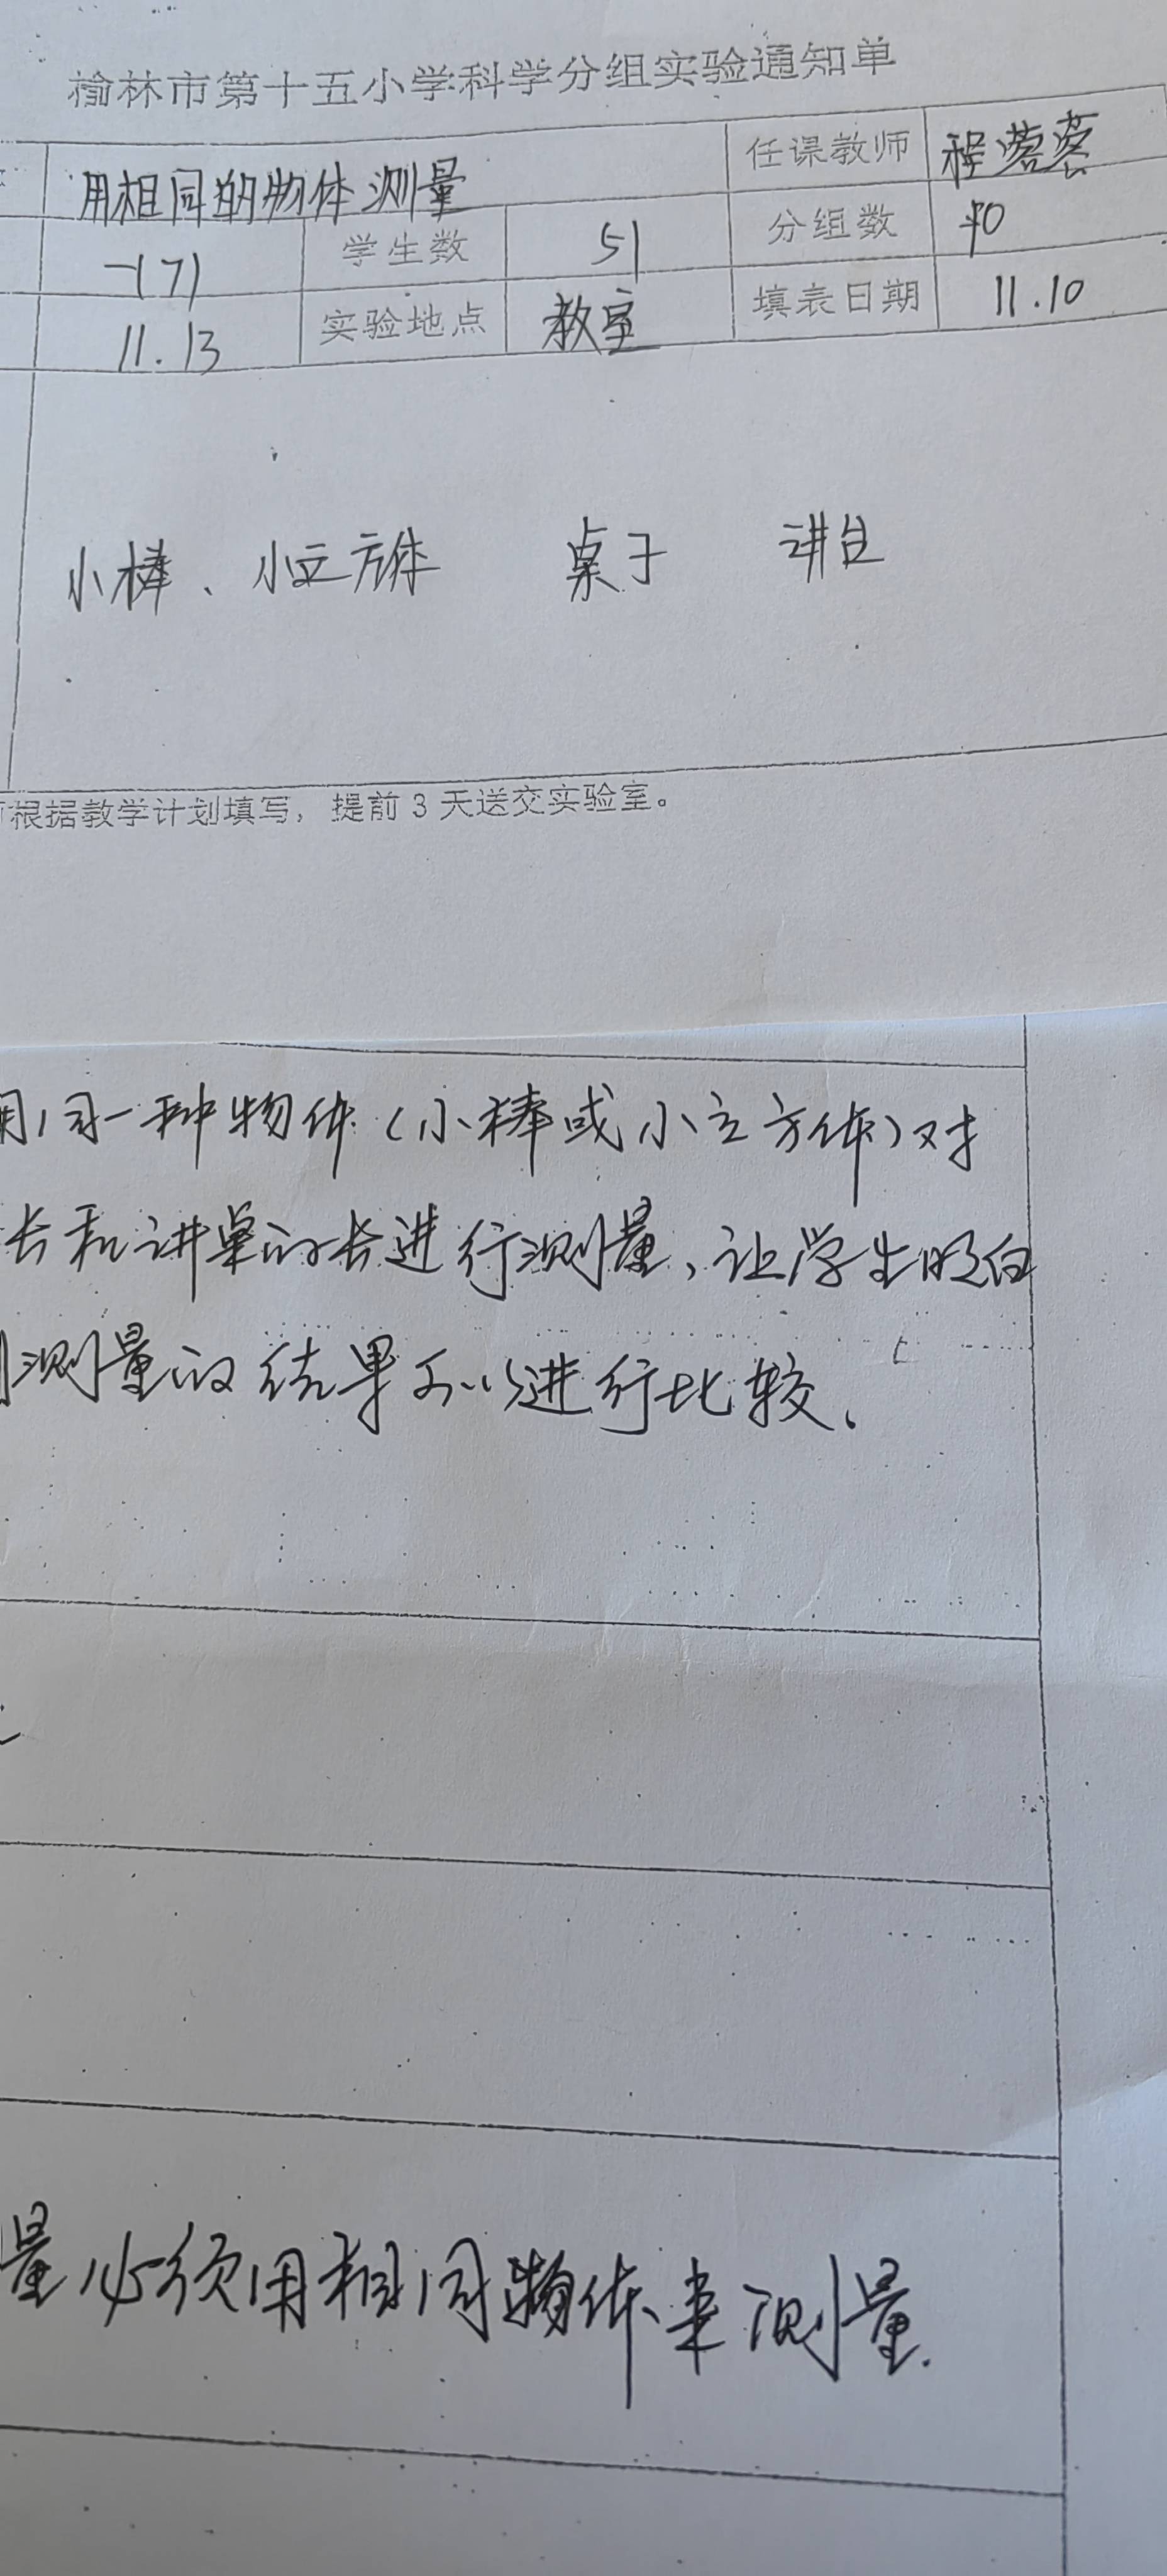 榆林市第十五小学科学分组实验通知单
用相同的物体测量 任课教师 程蓉蓉
一(7) 学生数 51 分组数 10
11.13 实验地点 教室 填表日期 11.10
小棒、小立方体 桌子 讲台
根据教学计划填写，提前3天送交实验室。
用同一种物体(小棒或小立方体)对
长和讲桌的长进行测量,让学生明白
测量的结果可以进行比较.
量必须用相同物体来测量.